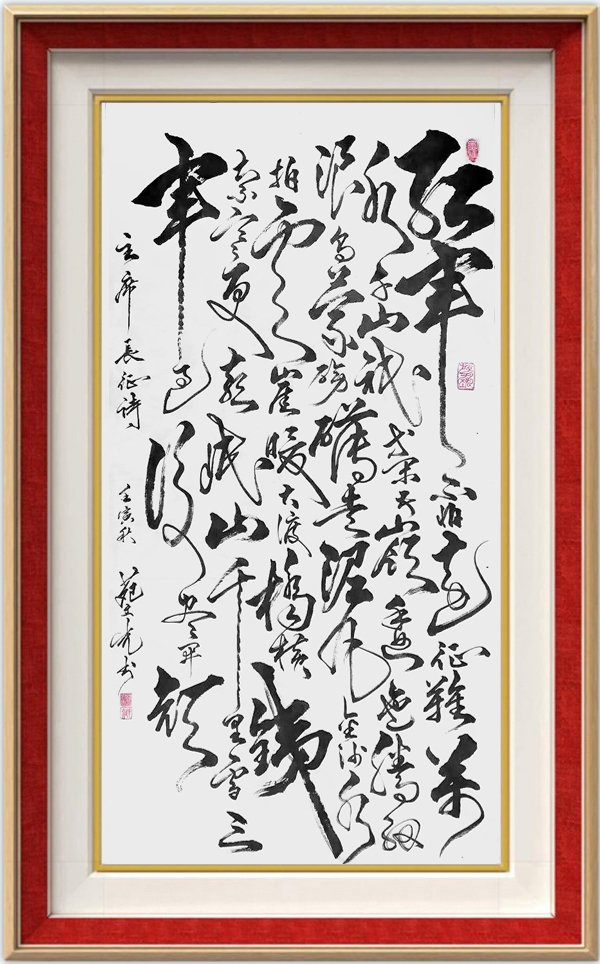 红军不怕远征難萬
水千山祇等闲五嶺逶迤腾细
浪乌蒙磅礴走泥丸金沙水
拍云崖暖大渡橋横鐵
索寒更喜岷山千里雪三
军过後尽开颜
主席長征詩 壬寅秋 书